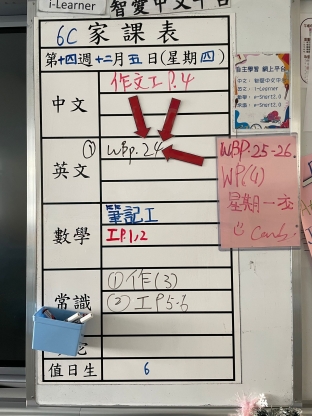 i-Learner
智愛中文平台
6C 家課表
第十四週 十二月五日(星期四)
中文
作文工P.4
英文
① WBp.24
數學
筆記工
工P.1,2
常識
① 作(3)
② 工P5-6
值日生
6
自主學習 網上平台
中文: 智愛中文平台
英文: i-Learner
WBP.25-26
WP(4)
星期一交